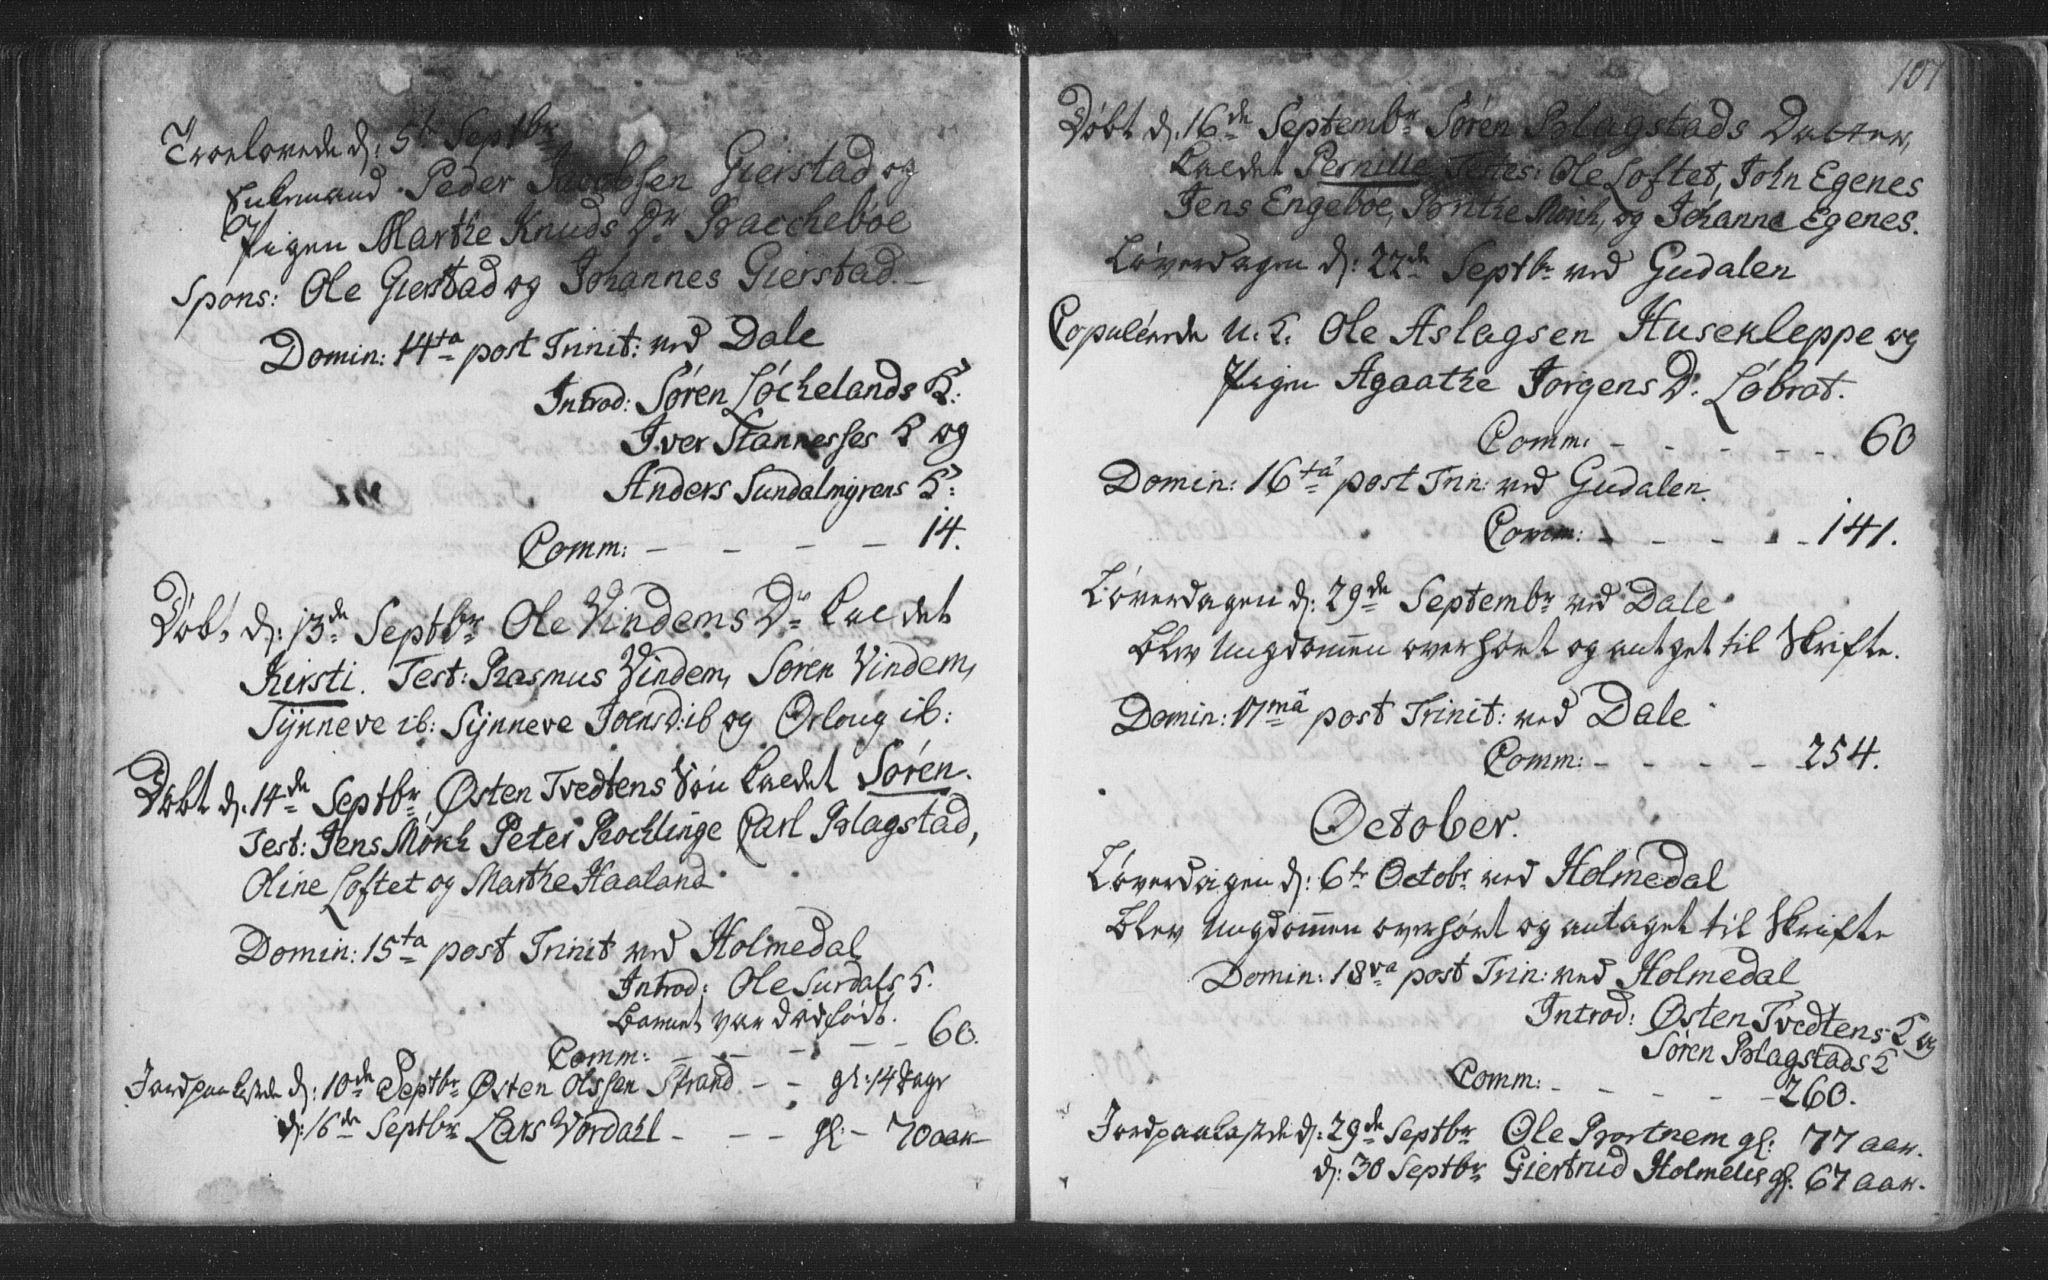 Troelovede d: 5te Septbr
Enkemand Peder Jacobsen Gierstad og
Pigen Marthe Knuds Dr Bacchebøe
Spons: Ole Gierstad og Johannes Gierstad.
Domin: 14ta post Trinit: ved Dale
Introd: Søren Løchelands K:
Iver Stannesses K og
Anders Sundalmyrens K:
Comm: - - - - 14.
Døbt d: 13de Septbr Ole Vindems Dr kaldet
Kirsti. Test: Rasmus Vindem, Søren Vindem,
Synneve ib: Synneve Joensd: ib og Orloug ib:
Døbt d: 14de Septbr Østen Tvedtens Søn kaldet Søren.
Test: Jens Mønk Peter Carl Blagstad,
Oline Loftet og Marthe Haaland
Domin: 15ta post Trinit ved Holmedal
Introd: Ole Surdals K.
Barnet var dødfødt.
Comm: - - - - 60.
Jordpaakastede d: 10de Septbr Østen Olssen Strand - - gl: 14 Dage
d: 16de Septbr Lars Vårdahl - - - gl: - 70 aar
107
Døbt d: 16de Septembr Søren Blagstads Datter,
kaldet Pernille. Testes: Ole Loftet, John Egenes
Jens Engebøe, Brithe Mønk, og Johanne Egenes.
Løverdagen d: 22de Septbr ved Gudalen
Copulerede u. K. Ole Aslagsen Husekleppe og
Pigen Agaathe Jørgens Dr Løbrat.
Comm: - - - - - 60
Domin: 16ta post Trin: ved Gudalen.
Comm: - - - - - 141.
Løverdagen d: 29de Septembr ved Dale
blev Ungdommen overhørt og antaget til Skrifte.
Domin: 17ma post Trinit: ved Dale
Comm: - - - - 254.
October.
Løverdagen d: 6te Octobr ved Holmedal
blev Ungdommen overhørt og antaget til Skrifte
Domin: 18va post Trin: ved Holmedal
Introd: Østen Tvedtens K og
Søren Blagstads K
Comm: - - - - - 260.
Jordpaakastede d: 29de Septbr Ole gl: 77 aar.
d: 30 Septbr Giertrud gl. 67 aar.